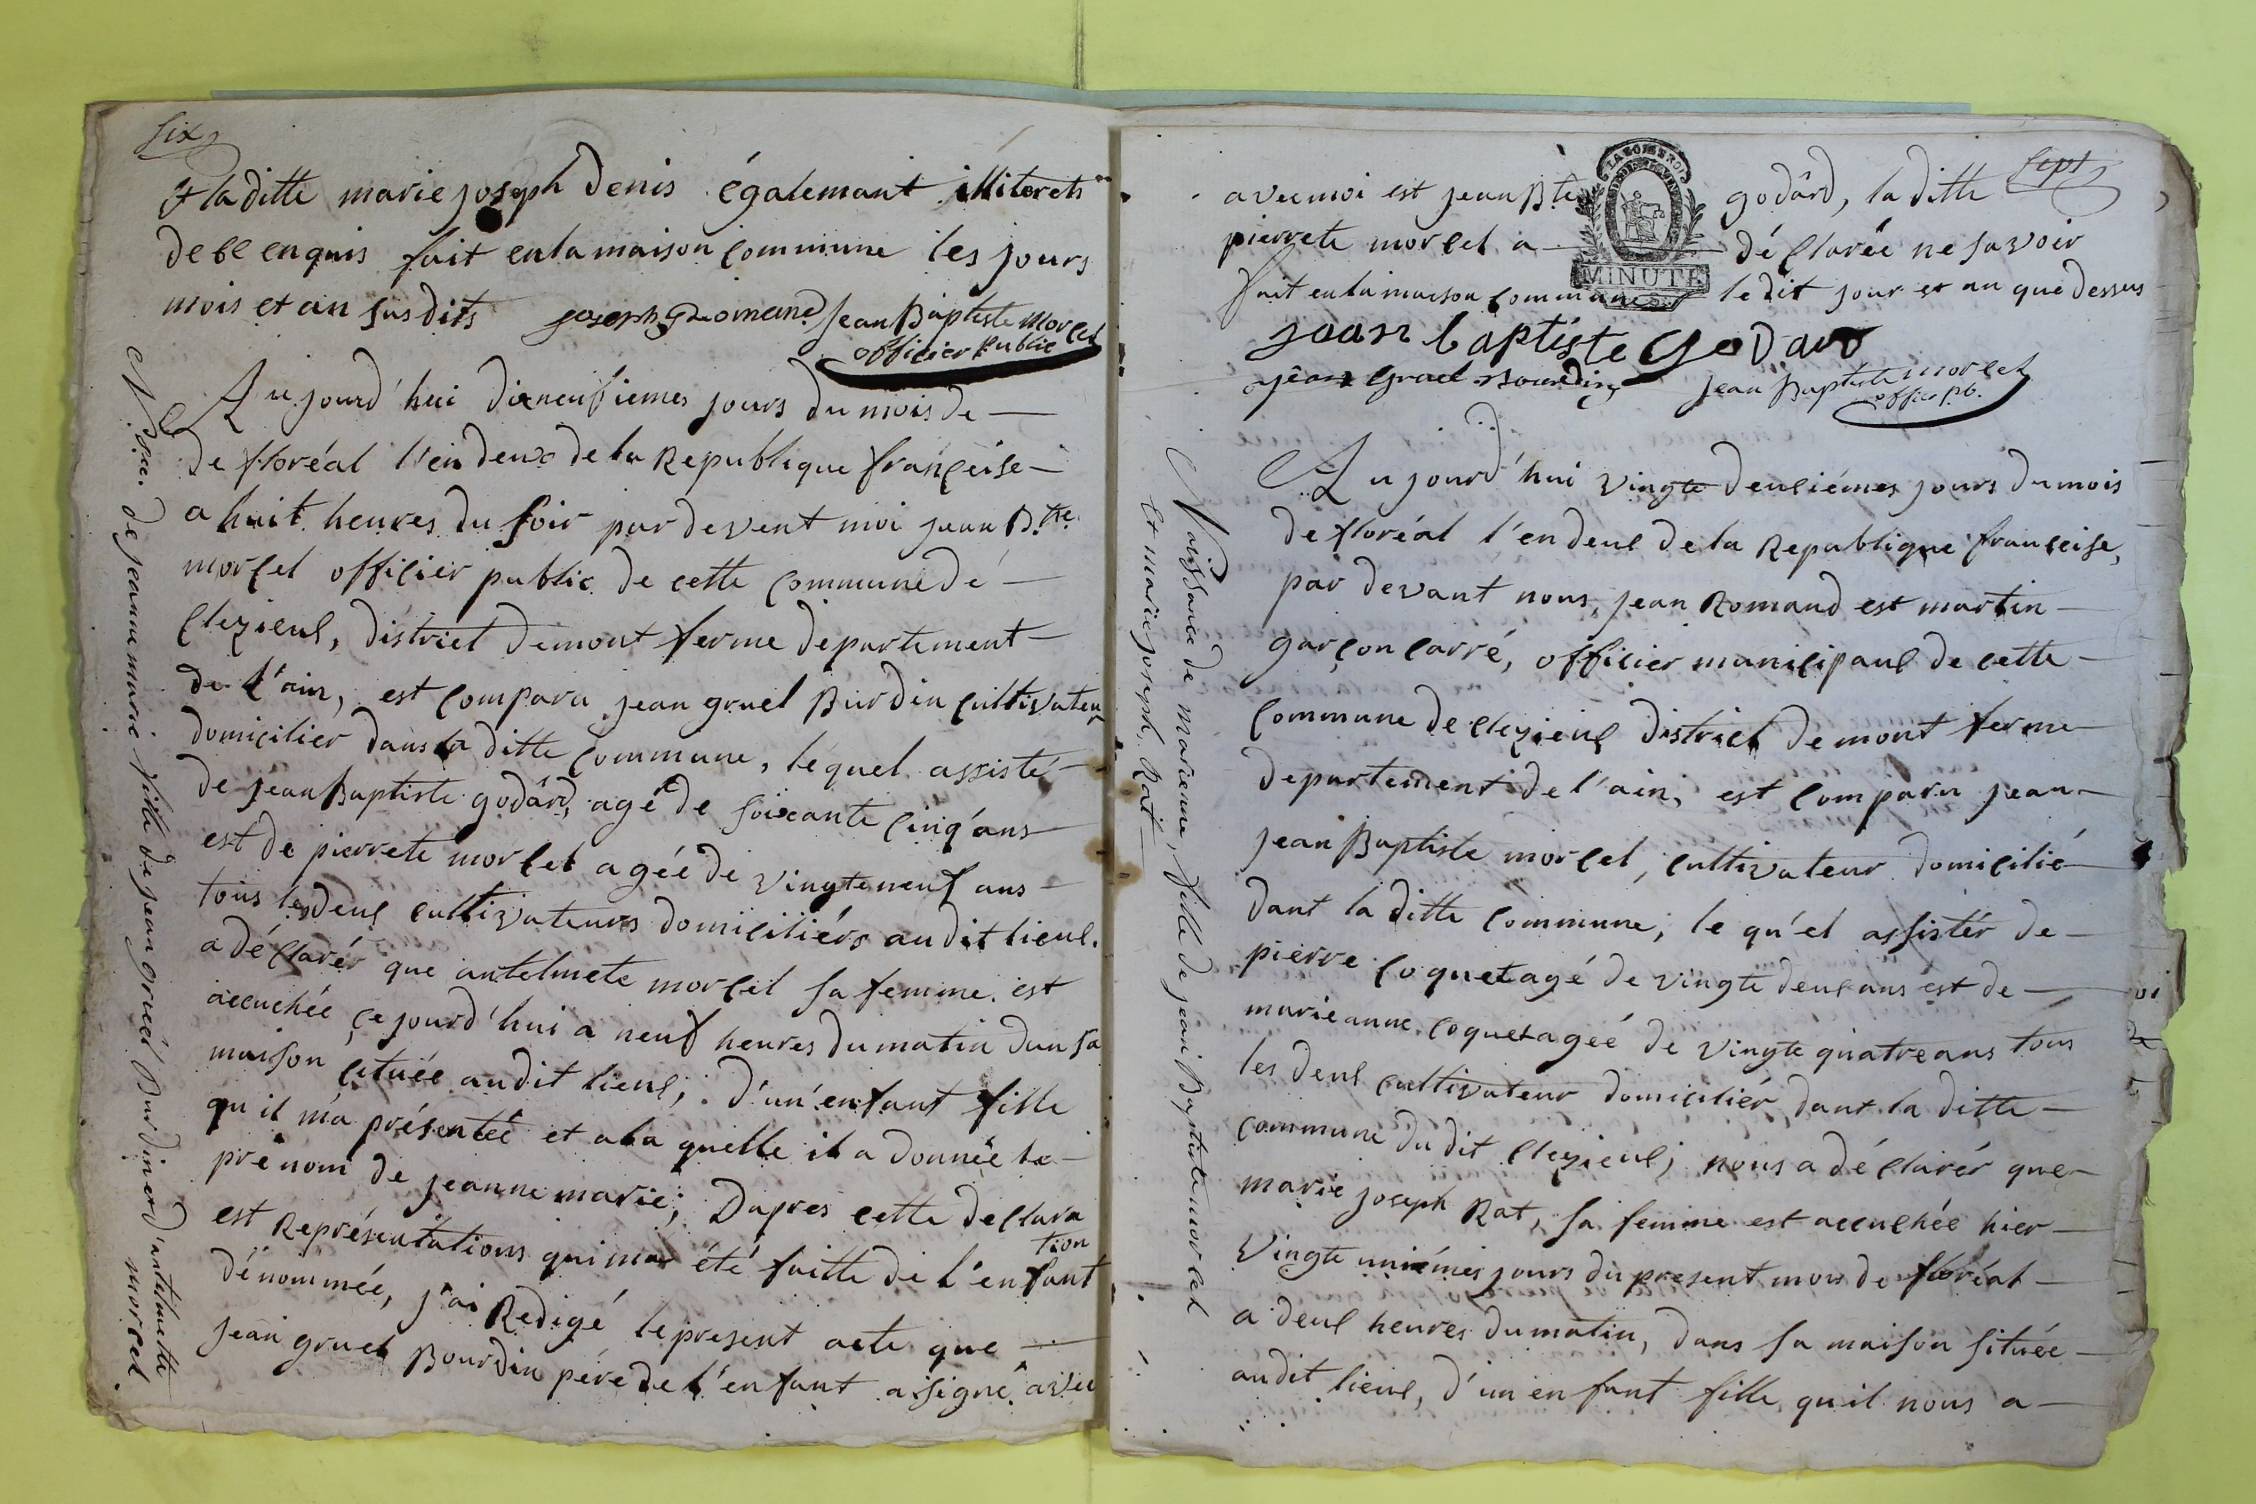 six
& la ditte marie joseph Denis égalemant illiterets
de ce enquis fait en la maison commune les jours
mois et an susdits joseph Guiomand jean Baptiste morcel
officier public
Aujourd'hui dixneufiemes jours du mois de
de floréal l'en deux de la Republique françeise
a huit heures du soir par devent moi jean B.te
morcel officier public de cette commune de
Clezieul, district de mont ferme departement
de l'ain, est compara jean gruel Burdin cultivateur
domicilier dans la ditte commune, le quel assisté
de jean Baptiste godârd, agé de soixante cinq'ans
est de pierrete morcel agée de vingte neuf ans
tous les deul cultivateurs domiciliérs au dit lieul.
a déclarér que antelmete morcel sa femme est
accuchée ce jourd'hui a neuf heures du matin dans sa
maison cituée au dit lieul, d'un'enfant fille
qu'il m'a présentée et a la quelle il a donnée le
prénom de jeanne marie; Dapres cette declara
tion
est Représentations qui ma été faitte de l'enfant
dénommée, j'ai Redigé le present acte que
jean gruel Bourdin pére de l'enfant a signé avec
N.sce de jeanne marie fille de jean gruel Burdin et d'antelmette
morcel
sept
avec moi est jean Bte godârd, la ditte
pierrete morcel a déclarée ne savoir
fait en la maison commune le dit jour et an que dessus
LA LOI LE ROI
MINUTE
jean baptiste Godard
jean Gruel Bourdin jean Baptiste morcel
offier pb.
Aujourd'hui vingte deuliémes jours du mois
de floréal l'en deul de la Republique françeise,
par devant nous, jean Romand est martin
garçon carré, officier municipaul de cette
commune de Clezieul district de mont ferme
departement de l'ain, est comparu jean
jean Baptiste morcel, cultivateur domicilié
dant la ditte commune, le qu'el assistér de
pierre coquet agé de vingte deul ans est de
marie anne coquet agéé de vingte quatre ans tous
les deul cultivateur domiciliér dant la ditte
commune du dit Clezieul; nous a déclarér que
marie joseph Rat, sa femme est accuchée hier
vingte uniémes jours du present mois de floréal
a deul heures du matin, dans sa maison située
au dit lieul, d'un enfant fille qu'il nous a
Naissance de marienne, fille de jean Baptiste morcel
et marie joseph Rat